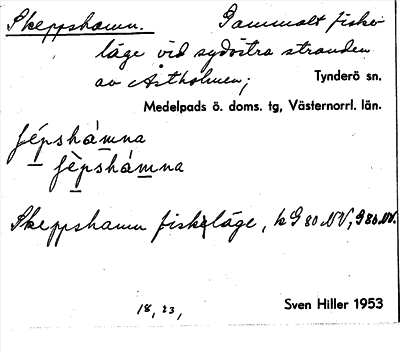 Skeppshamn. Gammalt fiske-
läge vid sydöstra stranden
av Åstholmen; Tynderö sn.
Medelpads ö. doms. tg, Västernorrl. län.
fę́pshámna
fę̀pshámna
Skeppshamn fiskeläge, k G 80 NV, G 80 NV.
18, 23,
Sven Hiller 1953